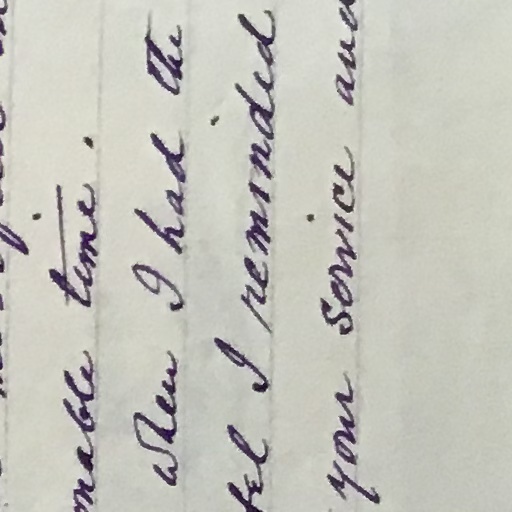 time.
when I had the
I reminded
your service and